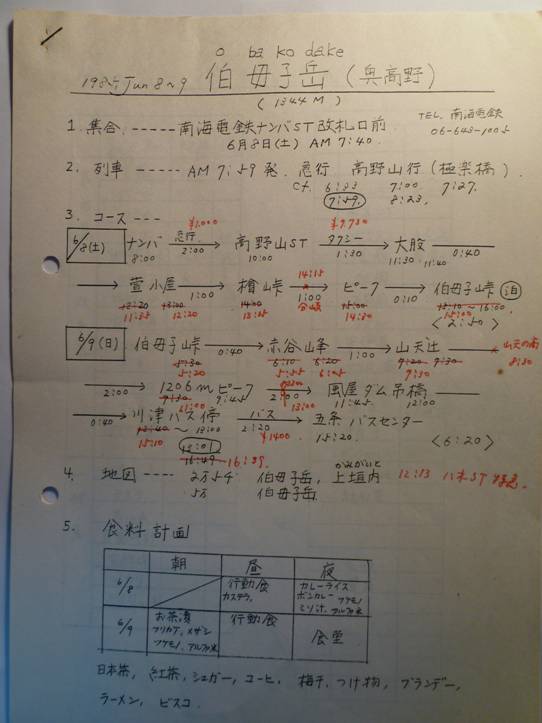 o ba ko dake
1985 Jun 8~9 伯母子岳 (奥高野)
(1344M)
1. 集合 ----- 南海電鉄ナンバST改札口前 TEL. 南海電鉄
6月8日(土) AM 7:40. 06-643-1005
2. 列車 ----- AM 7:59発. 急行 高野山行 (極楽橋).
cf. 6:33 7:00 7:27.
7:59. 8:23.
3. コース ---
¥1,000 ¥9,730
6/8(土) ナンバ 急行 高野山ST タクシー 大股
8:00 2:00 10:00 1:30 11:30 11:40 0:40
萱小屋 1:00 檜峠 14:15 1:00 ピーク 0:10 伯母子峠 泊
13:20 13:00 14:00 分岐 15:00 15:10~16:00
11:55 12:20 13:25 14:30 15:00
<2:50>
6/9(日) 伯母子峠 0:40 赤谷山峰 1:00 山天辻
5:30 6:10 6:20 9:20 9:30
5:20 5:55 6:05 7:30 8:30
2:00 1206mピーク 2:00 風屋ダム吊橋
9:30 9:45 11:45 12:00
11:00 13:00
0:40 川津バス停 バス 五条バスセンター
12:40~13:00 2:20 15:20. <6:20>
15:10 13:01 ¥1400
16:49 16:39
4. 地図 ---- 2万5千 伯母子岳, 上垣内 12:13 八木ST 特急
かみがいと
5万 伯母子岳
5. 食料計画
朝 昼 夜
6/8 行動食 カステラ. カレーライス ボンカレー ツケモノ ミソ汁. アルファ米
6/9 お茶漬 フリカケ, メザシ ツケモノ, アルファ米 行動食 食堂
日本茶, 紅茶, シュガー, コーヒ, 梅干, つけ物, ブランデー,
ラーメン, ビスコ.